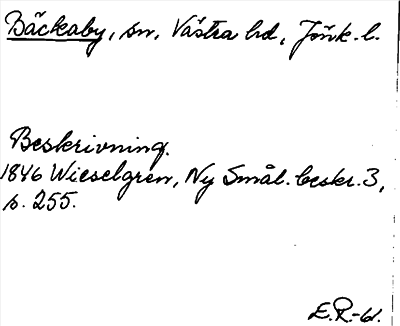 Bäckaby, sn, Västra hd, Jönk. l.
Beskrivning.
1846 Wieselgren, Ny Smål. beskr. 3,
s. 255.
E.R.-W.